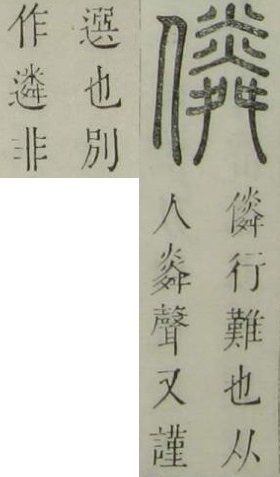 僯
僯行難也从
人㷠聲又謹
選也別
作遴非